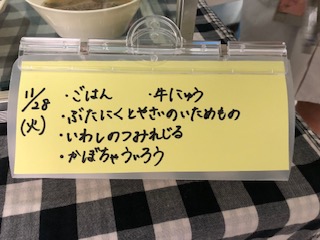 11/28
(火)
・ごはん ・牛にゅう
・ぶたにくとやさいのいためもの
・いわしのつみれじる
・かぼちゃういろう